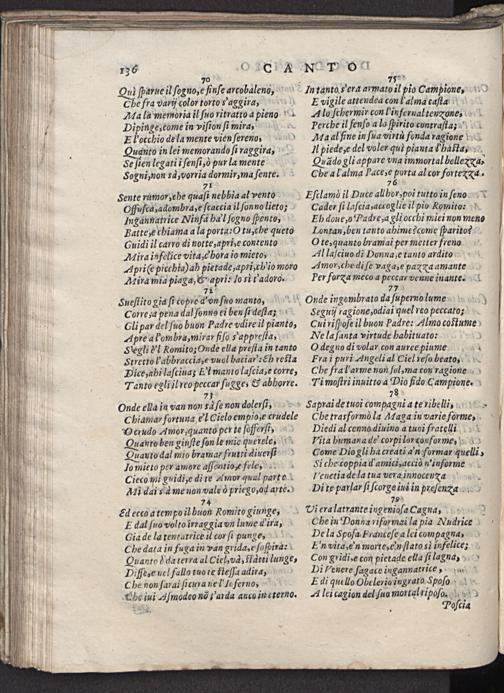 136 CANTO
70
Quì sparue il sogno, e finse arcobaleno,
Che fra varij color torto s'aggira,
Ma la memoria il suo ritratto a pieno
Dipinge, come in vision si mira,
E l'occhio de la mente vien sereno,
Quanto in lei memorando si raggira,
Se sien legati i sensi, ò pur la mente
Sogni, non sà, vorria dormir, ma sente.
71
Sente rumor, che quasi nebbia al vento
Offusca, adombra, e scaccia il sonno lieto;
Ingannatrice Ninfa ha'l sogno spento,
Batte, e chiama a la porta: O tu, che queto
Guidi il carro di notte, apri, e contento
Mira infelice vita, c'hora io mieto,
Apri (e picchia) ah pietade, apri, ch'io moro
Mira mia piaga, & apri: Io sì t'adoro.
72
Suestito già si copre d'vn suo manto,
Corre, a pena dal sonno ei ben si desta;
Gli par del suo buon Padre vdire il pianto,
Apre a l'ombra, mirar fiso s'appresta,
S'egli è'l Romito; Onde ella presta in tanto
Stretto l'abbraccia, e vuol baciar: Eh resta
Dice, ahi lasciua; E'l manto lascia, e corre,
Tanto egli il reo peccar fugge, & abhorre.
73
Onde ella in van non sà se non dolersi,
Chiamar fortuna, e'l Cielo empio, e crudele
O crudo Amor, quanto per te soffersi,
Quanto ben giuste son le mie querele,
Quanto dal mio bramar frutti diuersi
Io mieto per amore assentio, e fele,
Cieco mi guidi, e di te Amor qual parte
Mi dai s'à me non vale ò priego, od arte.
74
Ed ecco a tempo il buon Romito giunge,
E dal suo volto irraggia vn lume d'ira,
Già de la tentatrice il cor si punge,
Che data in fuga in van grida, e sospira:
Quanto è da terra al Ciel, và, statti lunge,
Disse, e nel fallo tuo te stessa adira,
Che non sarai sicura ne l'Inferno,
Che iui Asmodeo nõ s'arda anco in eterno.
75
In tanto s'era armato il pio Campione,
E vigile attendea con l'alma casta
A lo schermir con l'infernal tenzone,
Perche il senso a lo spirito contrasta;
Ma al fine in sua virtù fonda ragione
Il piede, e del voler quì pianta l'hasta,
Quãdo gli appare vna immortal bellezza,
Che a l'alma Pace, e porta al cor fortezza.
76
Esclamò il Duce allhor, poi tutto in seno
Cader si lascia, accoglie il pio Romito:
Eh doue, o Padre, a gli occhi miei non meno
Lontan, ben tanto ahime? come sparito?
O te, quanto bramai per metter freno
Al lasciuo di Donna, e tanto ardito
Amor, che di se vaga, e pazza amante
Per forza meco a peccar venne inante.
77
Onde ingombrato da superno lume
Seguij ragione, odiai quel reo peccato;
Cui rispose il buon Padre: Almo costume
Ne la santa virtude habituato:
O degno di volar con auree piume
Fra i puri Angeli al Ciel reso beato,
Che fra l'arme non sol, ma con ragione
Ti mostri inuitto a Dio fido Campione.
78
Saprai de tuoi compagni a te ribelli,
Che trasformò la Maga in varie forme,
Diedi al cenno diuino a tuoi fratelli
Vita humana de' corpi lor conforme,
Come Dio gli ha creati a'n formar quelli,
Sì che coppia d'amici, acciò n'informe
Venetia de la tua vera innocenza
Di te parlar si scorge iui in presenza
79
Vi era latrante ingeniosa Cagna,
Che in Donna riformai la pia Nudrice
De la Sposa Francese a lei compagna,
E'n vita, e'n morte, e'n stato sì infelice;
Con gridi, e con pietade ella si lagna,
Di Venere sagace ingannatrice,
E di quello Obelerio ingrato Sposo
A lei cagion del suo mortal riposo.
Poscia